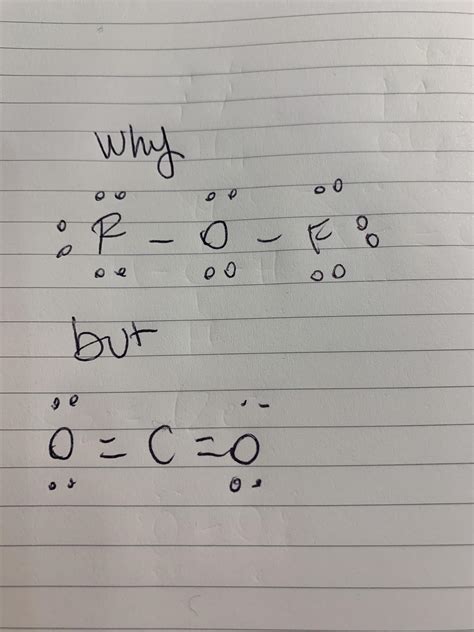 Why
:F̤̈ – Ö̤ – F̤̈:
but
Ö̤ = C = Ö̤